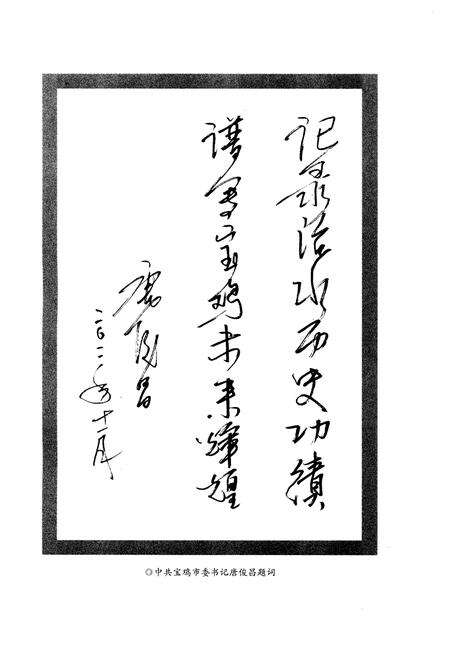 记录治水历史功绩
谱写宝鸡未来辉煌
唐俊昌
二〇一一年十一月
◎中共宝鸡市委书记唐俊昌题词